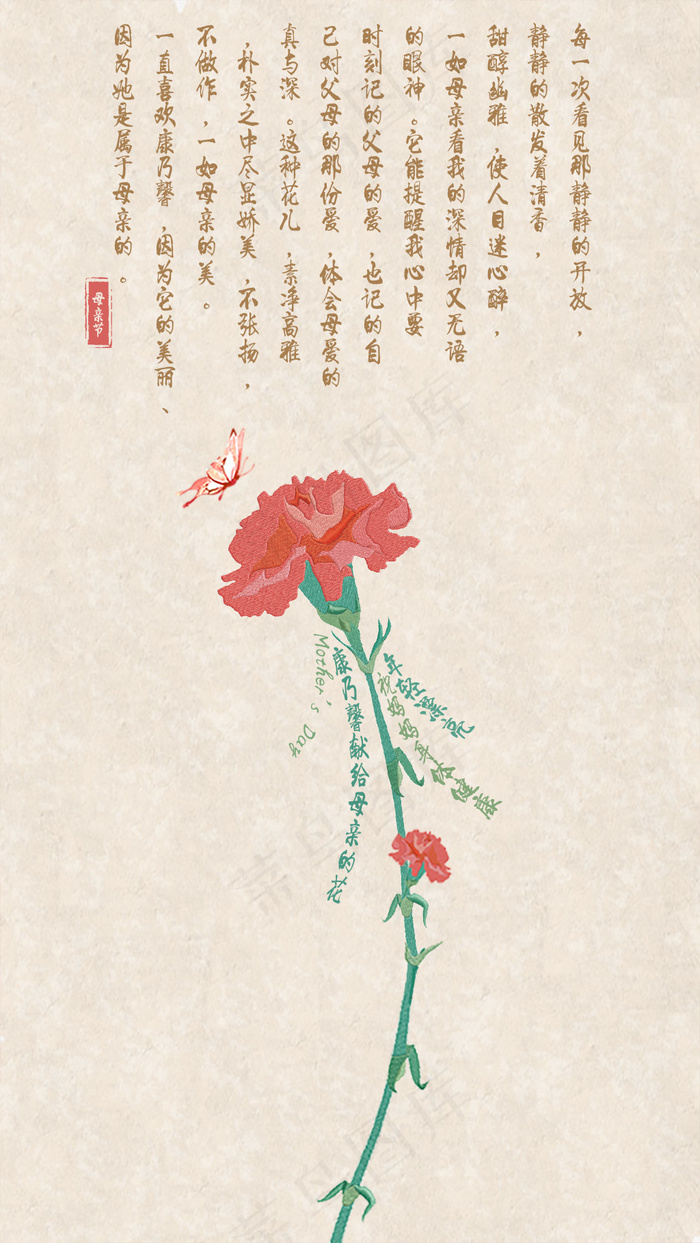 每一次看见那静静的开放，
静静的散发着清香，
甜醇幽雅，使人目迷心醉，
一如母亲看我的深情却又无语
的眼神。它能提醒我心中要
时刻记的父母的爱，也记的自
己对父母的那份爱，体会母爱的
真与深。这种花儿，素净高雅
，朴实之中尽显娇美，不张扬，
不做作，一如母亲的美。
一直喜欢康乃馨，因为它的美丽、
因为她是属于母亲的。
母亲节
年轻漂亮
祝妈妈身体健康
康乃馨献给母亲的花
Mother's Day